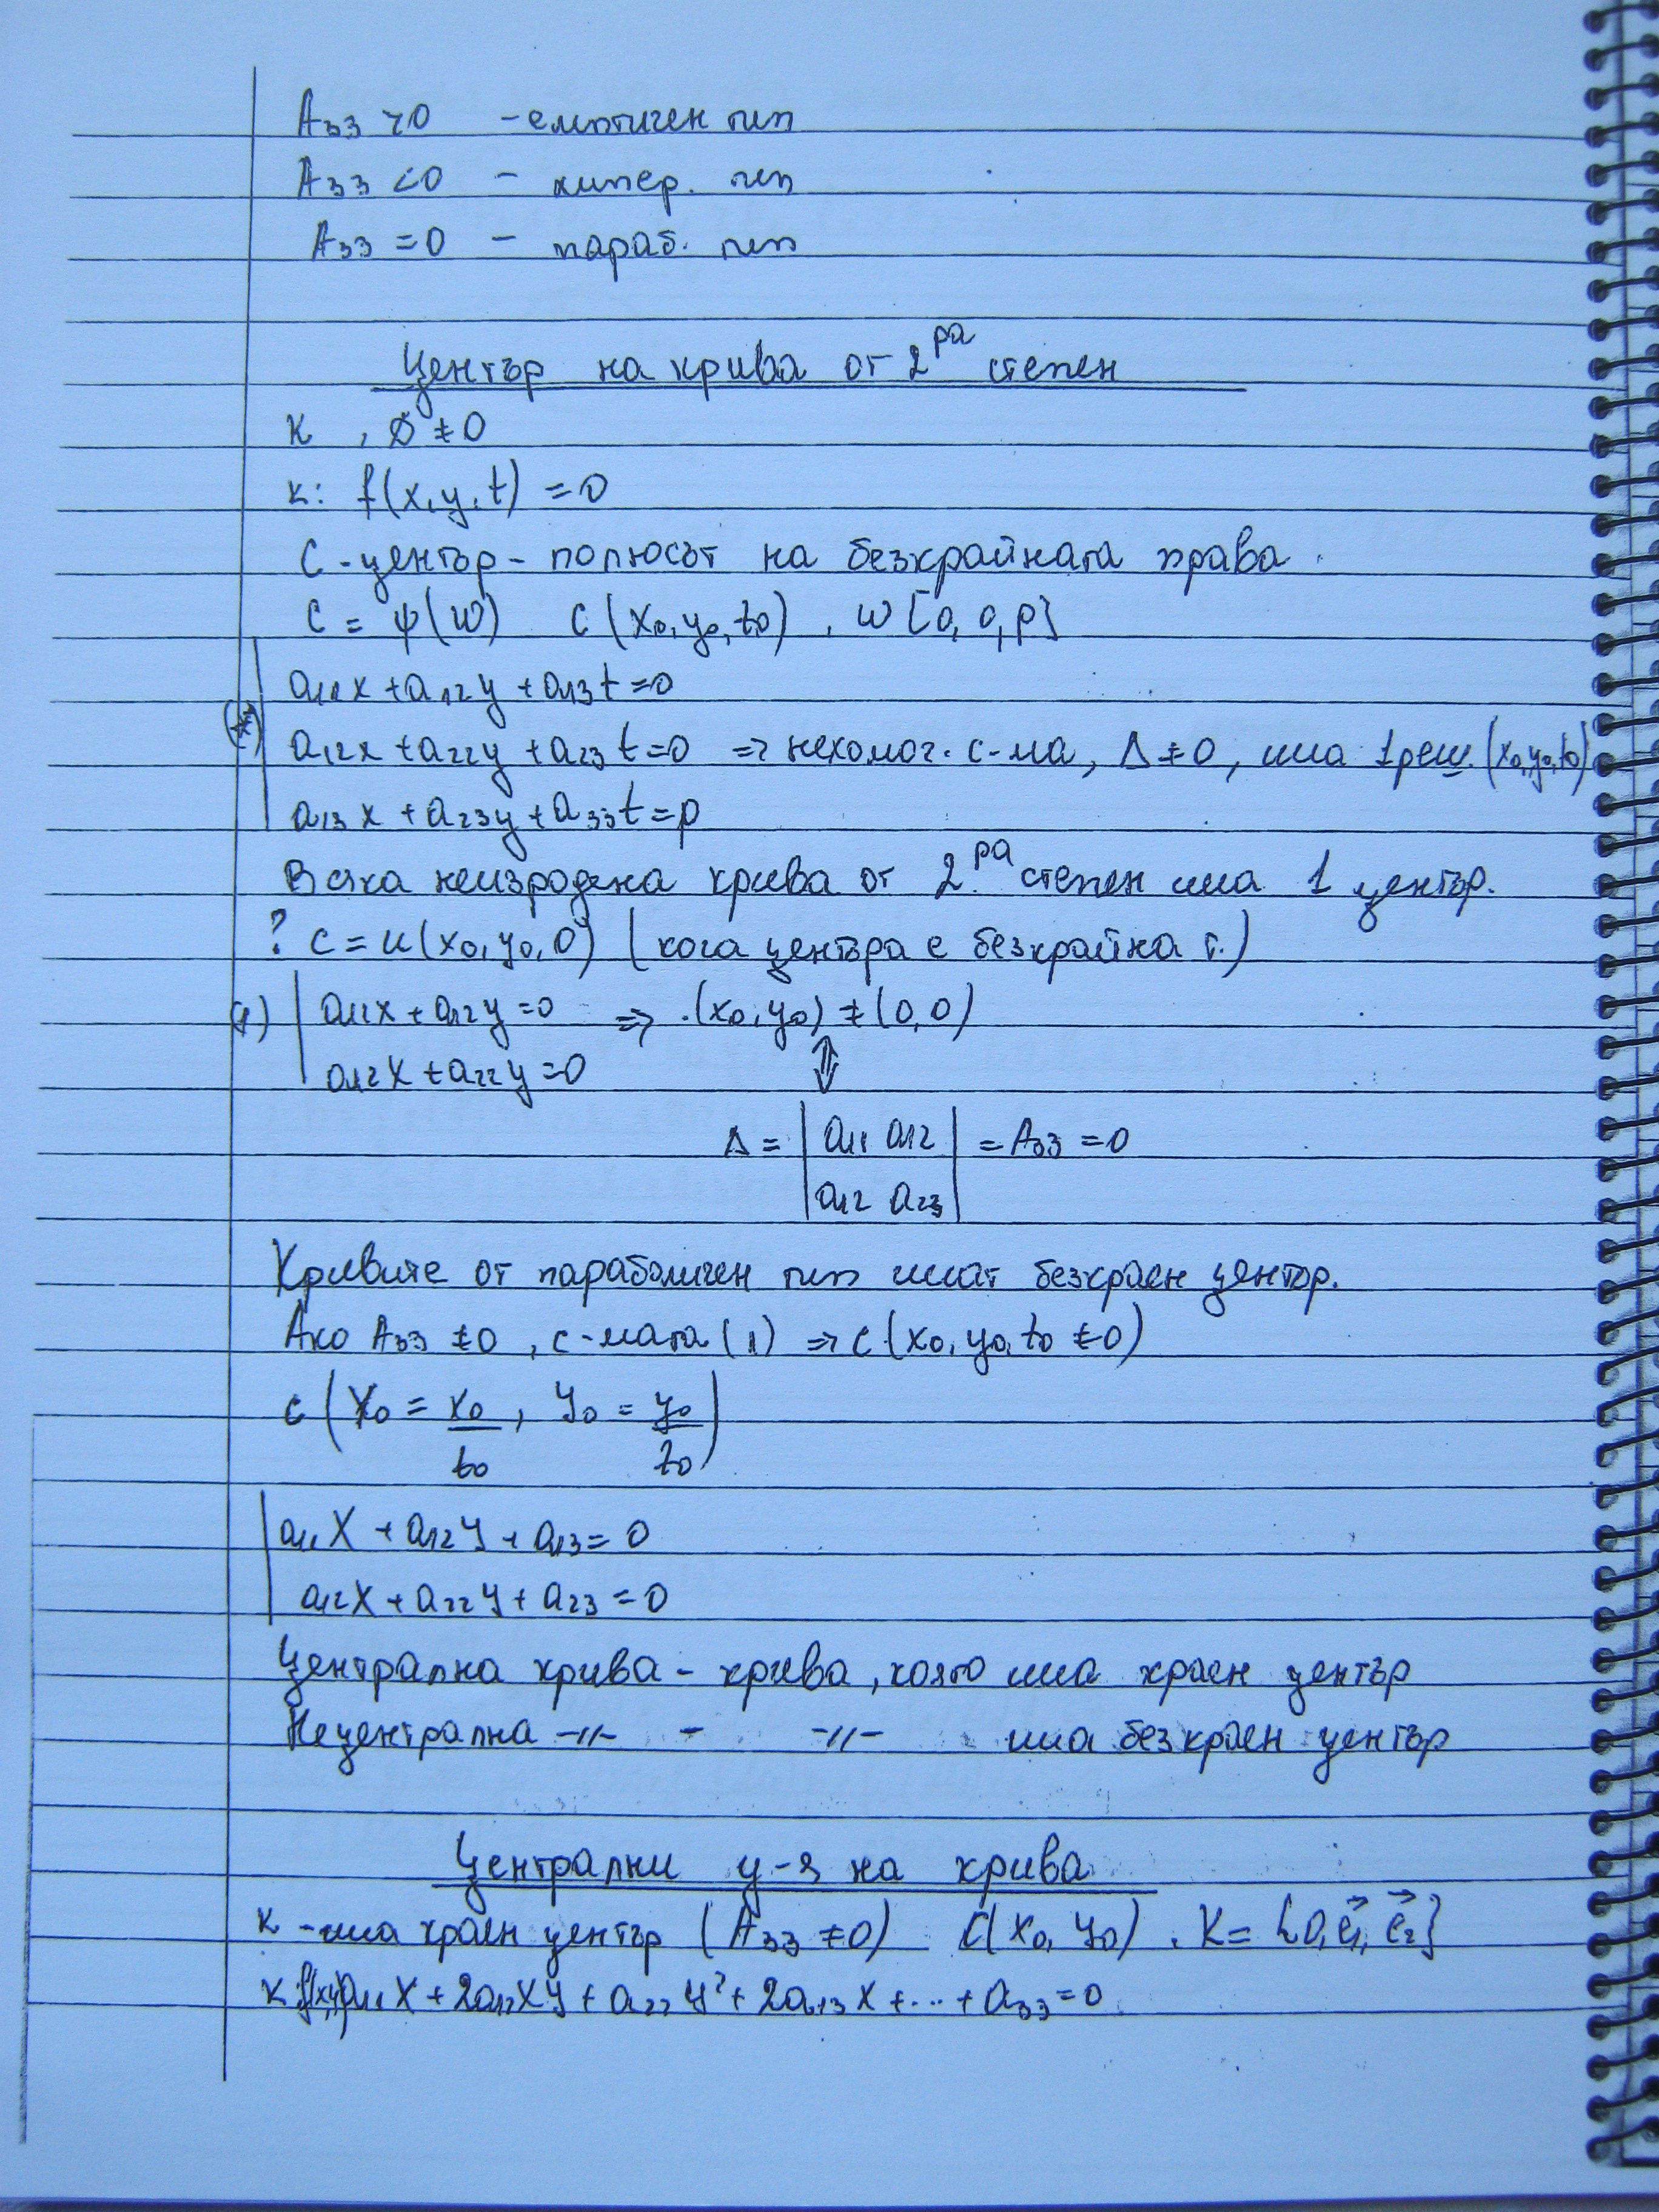 A₃₃ > 0 - елиптичен тип
A₃₃ < 0 - хипер. тип
A₃₃ = 0 - параб. тип
Център на крива от 2ра степен
к , Δ ≠ 0
к: f(x, y, t) = 0
С - център - полюсът на безкрайната права.
C = ψ(ω) C(x₀, y₀, t₀), ω[0, 0, ρ]
a₁₁x + a₁₂y + a₁₃t = 0
(*) a₁₂x + a₂₂y + a₂₃t = 0 => нехомог. с-ма, Δ ≠ 0, има 1 реш. (x₀, y₀, t₀)
a₁₃x + a₂₃y + a₃₃t = ρ
Всяка неизродена крива от 2ра степен има 1 център.
? C = U(x₀, y₀, 0) (кога центъра е безкрайна т.)
(1) a₁₁x + a₁₂y = 0 => (x₀, y₀) ≠ (0, 0)
a₁₂x + a₂₂y = 0 ⇕
Δ = | a₁₁ a₁₂ | = A₃₃ = 0
| a₁₂ a₂₃ |
Кривите от параболичен тип имат безкраен център.
Ако A₃₃ ≠ 0, с-мата (1) => C(x₀, y₀, t₀ ≠ 0)
C (X₀ = x₀/t₀, Y₀ = y₀/t₀)
a₁₁X + a₁₂Y + a₁₃ = 0
a₁₂X + a₂₂Y + a₂₃ = 0
Централна крива - крива, която има краен център
Нецентрална -//- - -//- има безкраен център
Централни у-я на крива
к - има краен център (A₃₃ ≠ 0) C(X₀, Y₀). K = {O, e⃗₁, e⃗₂}
к: f(x,y) a₁₁X + 2a₁₂XY + a₂₂Y² + 2a₁₃X + ... + a₃₃ = 0